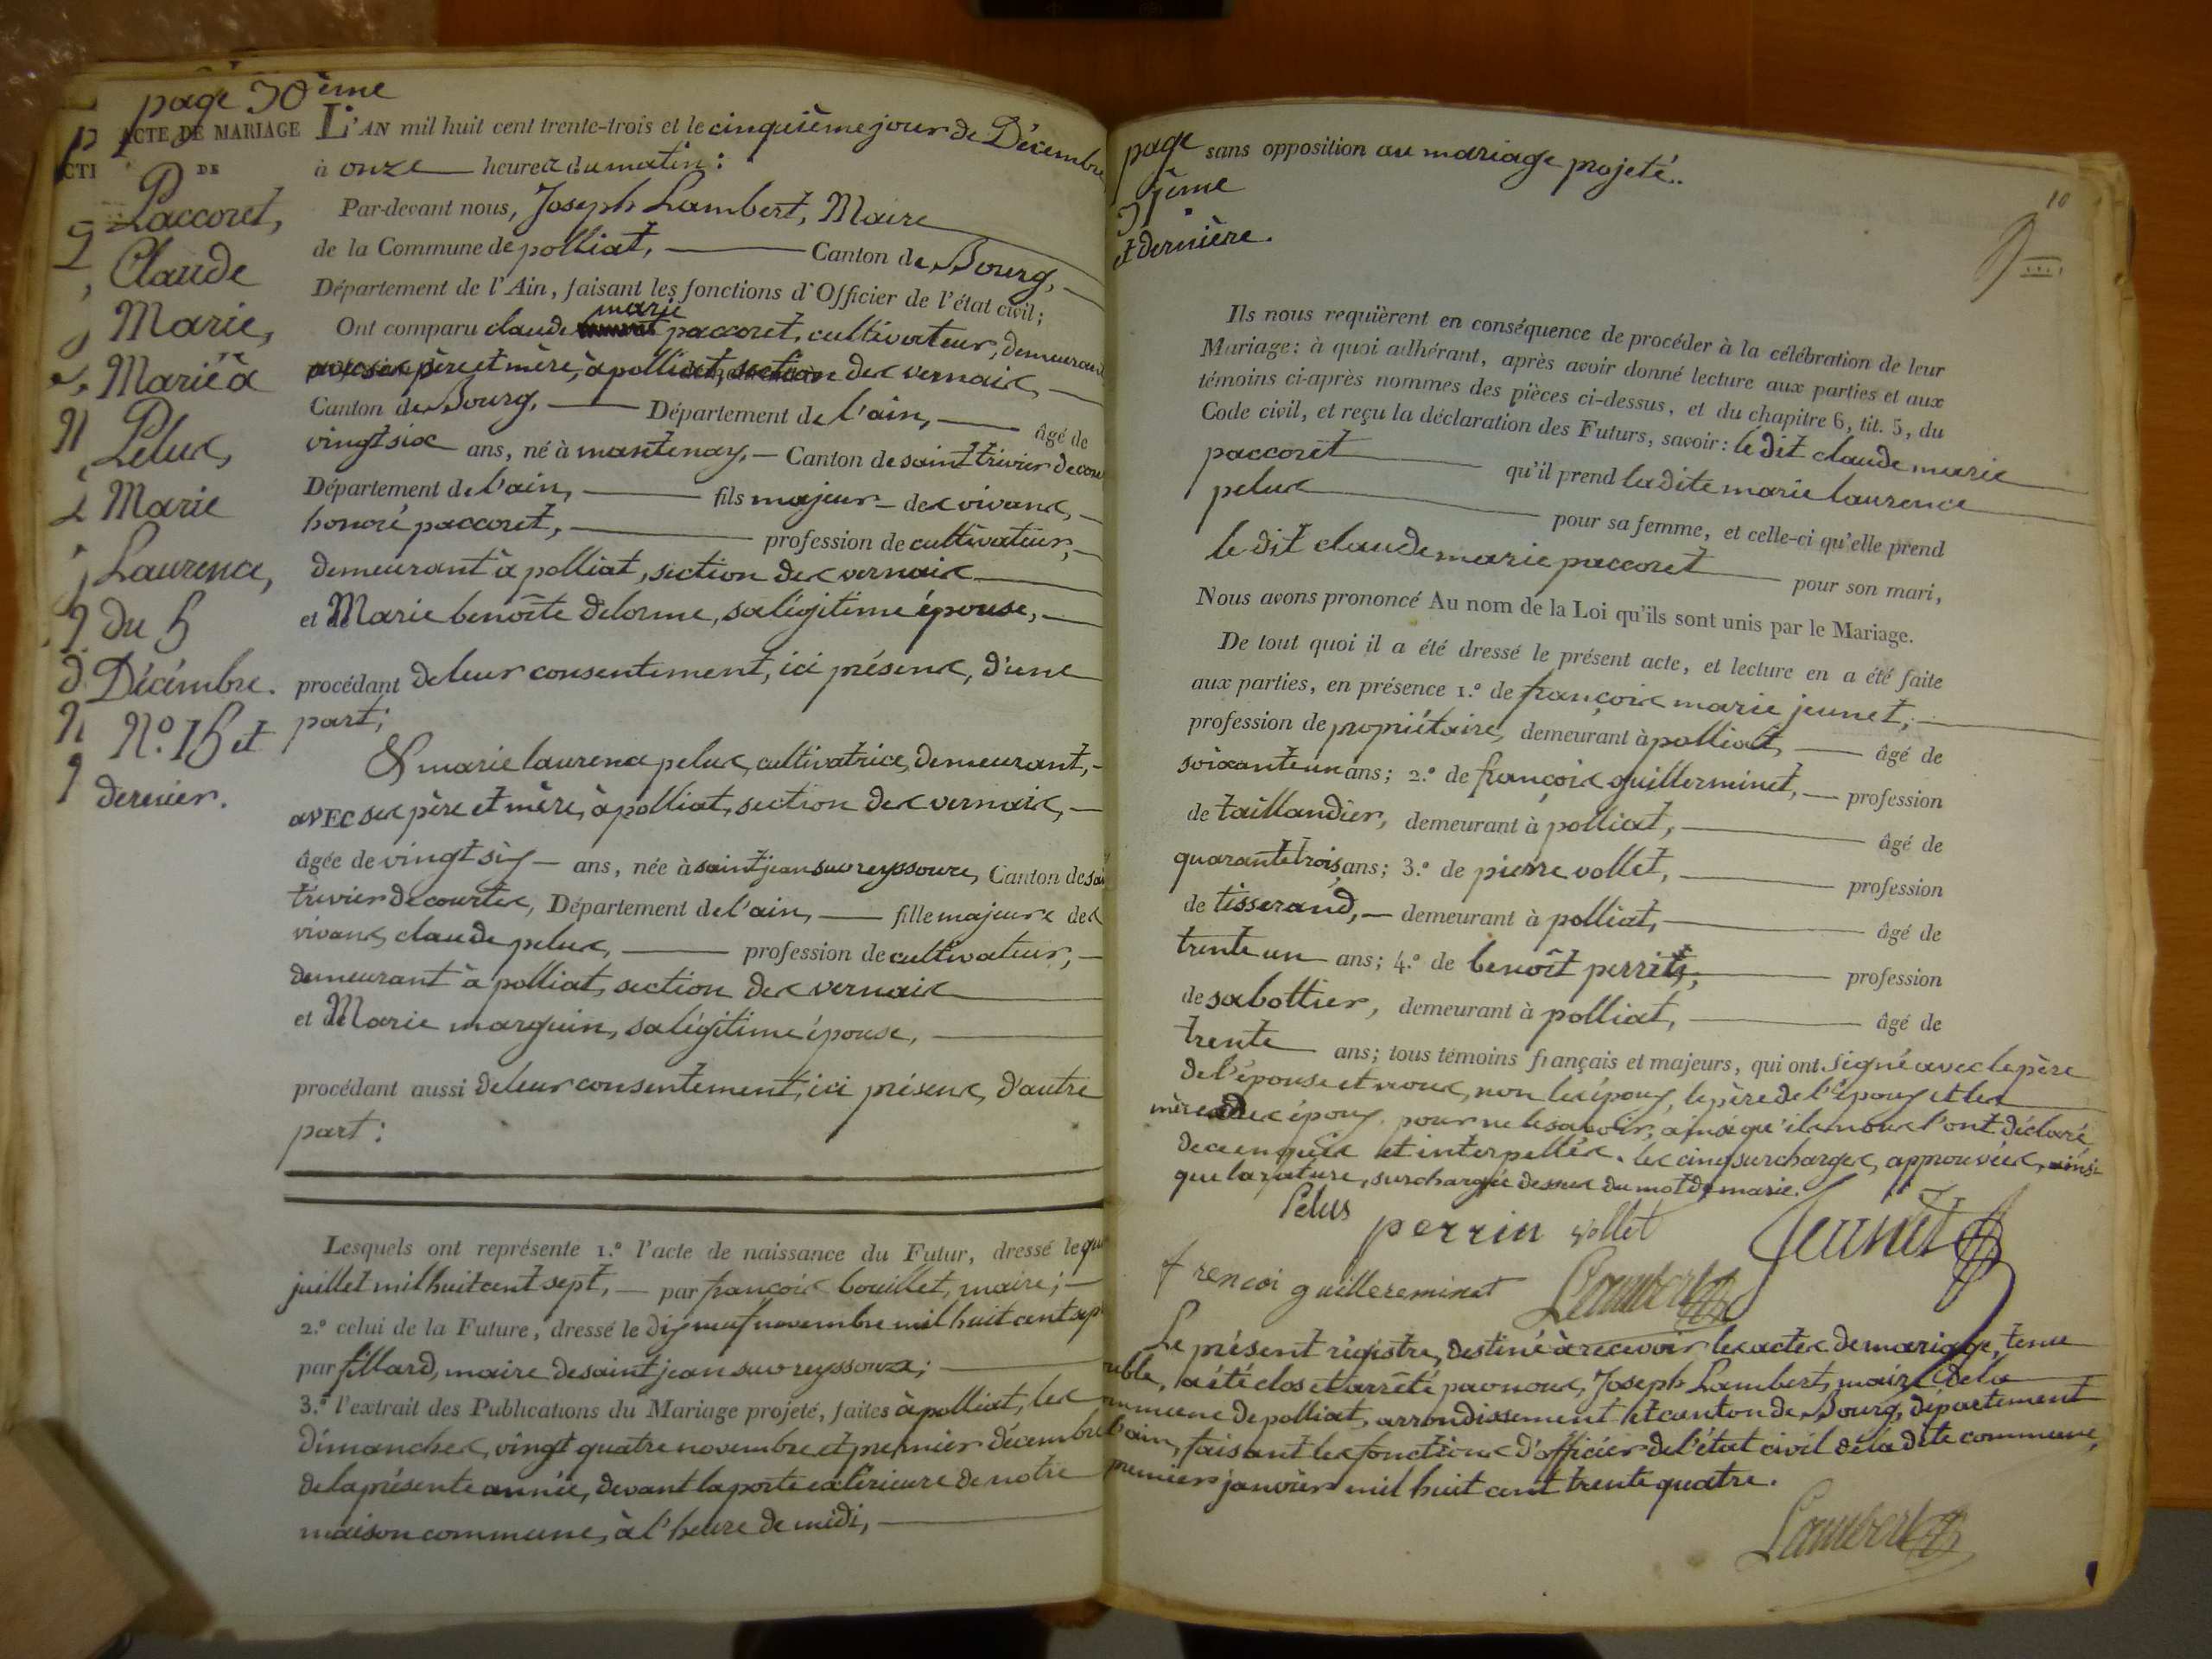 page 30ème
ACTE DE MARIAGE
DE
Paccoret,
Claude
Marie,
Marié à
Pelus,
Marie
Laurence,
du 5
Décembre.
N.° 15 et
dernier.
L'AN mil huit cent trente-trois et le cinquième jour de Décembre
à onze heures du matin :
Par-devant nous, Joseph Lambert, Maire
de la Commune de polliat, Canton de Bourg,
Département de l'Ain, faisant les fonctions d'Officier de l'état civil;
marie
Ont comparu claude paccoret, cultivateur, demeurant
avec ses père et mère, à polliat, section des vernais,
Canton de Bourg, Département de l'ain, âgé de
vingt six ans, né à mantenay, Canton de saint trivier de cour
Département de l'ain, fils majeur des vivans,
honoré paccoret, profession de cultivateur,
demeurant à polliat, section des vernais
et de Marie benoîte delorme, sa légitime épouse,
procédant de leur consentement, ici présens, d'une
part;
Et marie laurence pelus, cultivatrice, demeurant,
avec ses père et mère, à polliat, section des vernais,
âgée de vingt six ans, née à saint jean sur reyssouze, Canton de sai
trivier de courtes, Département de l'ain, fille majeure des
vivans, claude pelus, profession de cultivateur,
demeurant à polliat, section des vernais
et de Marie marguin, sa légitime épouse,
procédant aussi de leur consentement, ici présens, d'autre
part :
Lesquels ont représenté 1.° l'acte de naissance du Futur, dressé le
juillet mil huit cent sept, par françois bouillet, maire;
2.° celui de la Future, dressé le dix neuf novembre mil huit cent sept
par fillard, maire de saint jean sur reyssouze;
3.° l'extrait des Publications du Mariage projeté, faites à polliat, les
dimanches, vingt quatre novembre et premier décembre
de la présente année, devant la porte extérieure de notre
maison commune, à l'heure de midi,
page
31ème
et dernière.
sans opposition au mariage projeté..
10
Ils nous requièrent en conséquence de procéder à la célébration de leur
Mariage : à quoi adhérant, après avoir donné lecture aux parties et aux
témoins ci-après nommés des pièces ci-dessus, et du chapitre 6, tit. 5, du
Code civil, et reçu la déclaration des Futurs, savoir : le dit claude marie
paccoret qu'il prend la dite marie laurence
pelus pour sa femme, et celle-ci qu'elle prend
le dit claude marie paccoret pour son mari,
Nous avons prononcé Au nom de la Loi qu'ils sont unis par le Mariage.
De tout quoi il a été dressé le présent acte, et lecture en a été faite
aux parties, en présence 1.° de françois marie jeunet,
profession de propriétaire, demeurant à polliat, âgé de
soixante un ans; 2.° de françois guillerminet, profession
de taillandier, demeurant à polliat, âgé de
quarante trois ans; 3.° de pierre vollet, profession
de tisserand, demeurant à polliat, âgé de
trente un ans; 4.° de benoît profession
de sabottier, demeurant à polliat, âgé de
trente ans; tous témoins français et majeurs, qui ont signé avec le père
de l'épouse et nous, non les époux, le père de l'époux et les
mères des époux pour ne le savoir, ainsi qu'ils nous l'ont déclaré
de ce enquis et interpellés. les cinq surcharges, approuvées, ainsi
que la rature, surchargée dessus du mot de marie.
Pelus perrin vollet Jeunet
frencoi guillereminet Lambert
Le présent régistre, destiné à recevoir les actes de mariage, tenu
ouble, a été clos et arrêté par nous, Joseph Lambert, maire de la
mmune de polliat, arrondissement et canton de Bourg, département
l'ain, faisant les fonctions d'officier de l'état civil de la dite commune,
premier janvier mil huit cent trente quatre.
Lambert